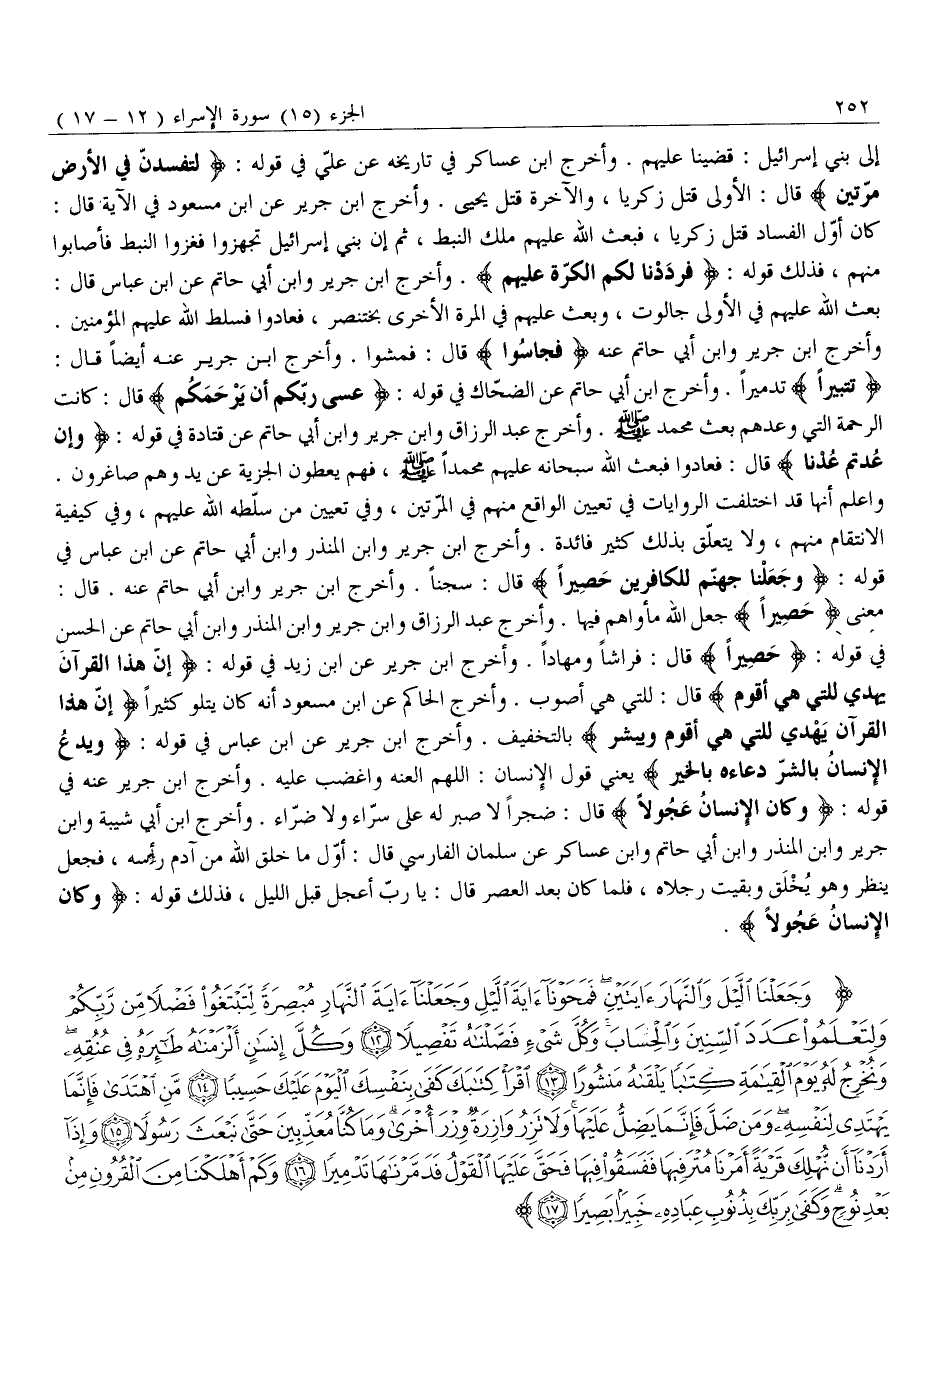 ٢٥٢
الجزء (١٥) سورة الإسراء (١٢ – ١٧)
إلى بني إسرائيل : قضينا عليهم . وأخرج ابن عساكر في تاريخه عن عليّ في قوله : ﴿ لتفسدنّ في الأرض
مرّتين ﴾ قال : الأولى قتل زكريا ، والآخرة قتل يحيى . وأخرج ابن جرير عن ابن مسعود في الآية قال :
كان أوّل الفساد قتل زكريا ، فبعث الله عليهم ملك النبط ، ثم إن بني إسرائيل تجهزوا فغزوا النبط فأصابوا
منهم ، فذلك قوله : ﴿ فردَدْنا لكم الكرّة عليهم ﴾ . وأخرج ابن جرير وابن أبي حاتم عن ابن عباس قال :
بعث الله عليهم في الأولى جالوت ، وبعث عليهم في المرة الأخرى بختنصر ، فعادوا فسلط الله عليهم المؤمنين .
وأخرج ابن جرير وابن أبي حاتم عنه ﴿ فجاسُوا ﴾ قال : فمشوا . وأخرج ابن جرير عنه أيضاً قال :
﴿ تتبيراً ﴾ تدميراً . وأخرج ابن أبي حاتم عن الضحّاك في قوله : ﴿ عسى ربّكم أن يَرْحَمَكُم ﴾ قال : كانت
الرحمة التي وعدهم بعث محمد ﷺ . وأخرج عبد الرزاق وابن جرير وابن أبي حاتم عن قتادة في قوله : ﴿ وإن
عُدتم عُدْنا ﴾ قال : فعادوا فبعث الله سبحانه عليهم محمداً ﷺ ، فهم يعطون الجزية عن يد وهم صاغرون .
واعلم أنها قد اختلفت الروايات في تعيين الواقع منهم في المرّتين ، وفي تعيين من سلّطه الله عليهم ، وفي كيفية
الانتقام منهم ، ولا يتعلّق بذلك كثير فائدة . وأخرج ابن جرير وابن المنذر وابن أبي حاتم عن ابن عباس في
قوله : ﴿ وجَعَلْنا جهنّم للكافرين حَصِيراً ﴾ قال : سجناً . وأخرج ابن جرير وابن أبي حاتم عنه . قال :
معنى ﴿ حَصِيراً ﴾ جعل الله مأواهم فيها . وأخرج عبد الرزاق وابن جرير وابن المنذر وابن أبي حاتم عن الحسن
في قوله : ﴿ حَصِيراً ﴾ قال : فراشاً ومهاداً . وأخرج ابن جرير عن ابن زيد في قوله : ﴿ إنّ هذا القرآنَ
يهدي للتي هي أقوم ﴾ قال : للتي هي أصوب . وأخرج الحاكم عن ابن مسعود أنه كان يتلو كثيراً ﴿ إنّ هذا
القرآن يَهْدي للتي هي أقوم ويبشر ﴾ بالتخفيف . وأخرج ابن جرير عن ابن عباس في قوله : ﴿ ويدعُ
الإنسانُ بالشرّ دعاءه بالخير ﴾ يعني قول الإنسان : اللهم العنه واغضب عليه . وأخرج ابن جرير عنه في
قوله : ﴿ وكان الإنسانُ عَجُولاً ﴾ قال : ضجراً لا صبر له على سرّاء ولا ضرّاء . وأخرج ابن أبي شيبة وابن
جرير وابن المنذر وابن أبي حاتم وابن عساكر عن سلمان الفارسي قال : أوّل ما خلق الله من آدم رأسه ، فجعل
ينظر وهو يُخْلَق وبقيت رجلاه ، فلما كان بعد العصر قال : يا ربّ أعجل قبل الليل ، فذلك قوله : ﴿ وكان
الإنسانُ عَجُولاً ﴾ .
﴿ وَجَعَلْنَا الَّيْلَ وَالنَّهَارَ ءَايَتَيْنِ فَمَحَوْنَا ءَايَةَ الَّيْلِ وَجَعَلْنَا ءَايَةَ النَّهَارِ مُبْصِرَةً لِّتَبْتَغُوا فَضْلًا مِّن رَّبِّكُمْ
وَلِتَعْلَمُوا عَدَدَ السِّنِينَ وَالْحِسَابَ وَكُلَّ شَىْءٍ فَصَّلْنَٰهُ تَفْصِيلًا ١٢ وَكُلَّ إِنسَٰنٍ أَلْزَمْنَٰهُ طَٰٓئِرَهُ فِى عُنُقِهِ
وَنُخْرِجُ لَهُ يَوْمَ الْقِيَٰمَةِ كِتَٰبًا يَلْقَىٰهُ مَنشُورًا ١٣ اقْرَأْ كِتَٰبَكَ كَفَىٰ بِنَفْسِكَ الْيَوْمَ عَلَيْكَ حَسِيبًا ١٤ مَّنِ اهْتَدَىٰ فَإِنَّمَا
يَهْتَدِى لِنَفْسِهِ وَمَن ضَلَّ فَإِنَّمَا يَضِلُّ عَلَيْهَا وَلَا تَزِرُ وَازِرَةٌ وِزْرَ أُخْرَىٰ وَمَا كُنَّا مُعَذِّبِينَ حَتَّىٰ نَبْعَثَ رَسُولًا ١٥ وَإِذَا
أَرَدْنَا أَن نُّهْلِكَ قَرْيَةً أَمَرْنَا مُتْرَفِيهَا فَفَسَقُوا فِيهَا فَحَقَّ عَلَيْهَا الْقَوْلُ فَدَمَّرْنَٰهَا تَدْمِيرًا ١٦ وَكَمْ أَهْلَكْنَا مِنَ الْقُرُونِ مِنْ
بَعْدِ نُوحٍ وَكَفَىٰ بِرَبِّكَ بِذُنُوبِ عِبَادِهِ خَبِيرًا بَصِيرًا ١٧ ﴾